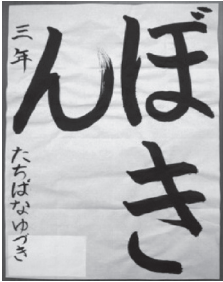 ぼき
ん
三年 たちばなゆづき